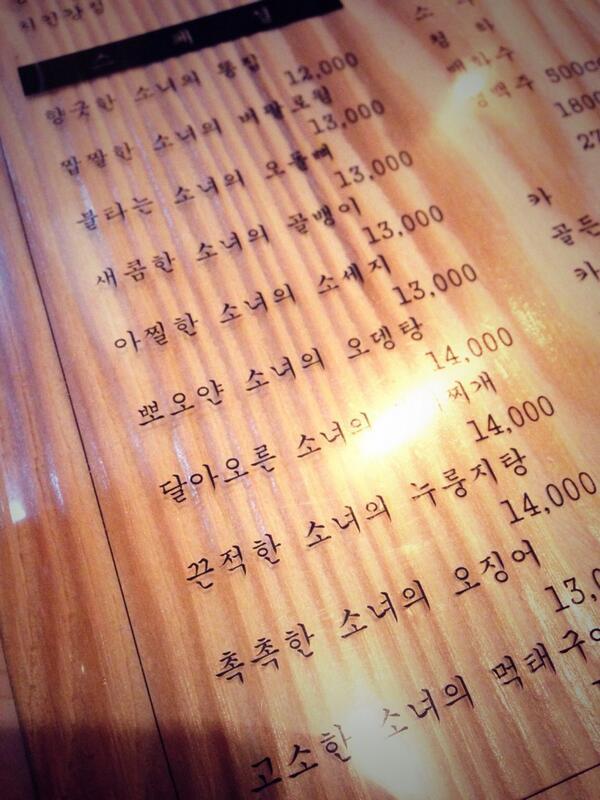 스 페 셜
향긋한 소녀의 똥집 12,000
짭짤한 소녀의 버팔로윙 13,000
불타는 소녀의 오돌뼈 13,000
새콤한 소녀의 골뱅이 13,000
아찔한 소녀의 소세지 13,000
뽀오얀 소녀의 오뎅탕 14,000
달아오른 소녀의 찌개 14,000
끈적한 소녀의 누룽지탕 14,000
촉촉한 소녀의 오징어 13,0
고소한 소녀의 먹태구이
소 주
청 하
매화수
생맥주 500cc
1800
27
카
골든
카